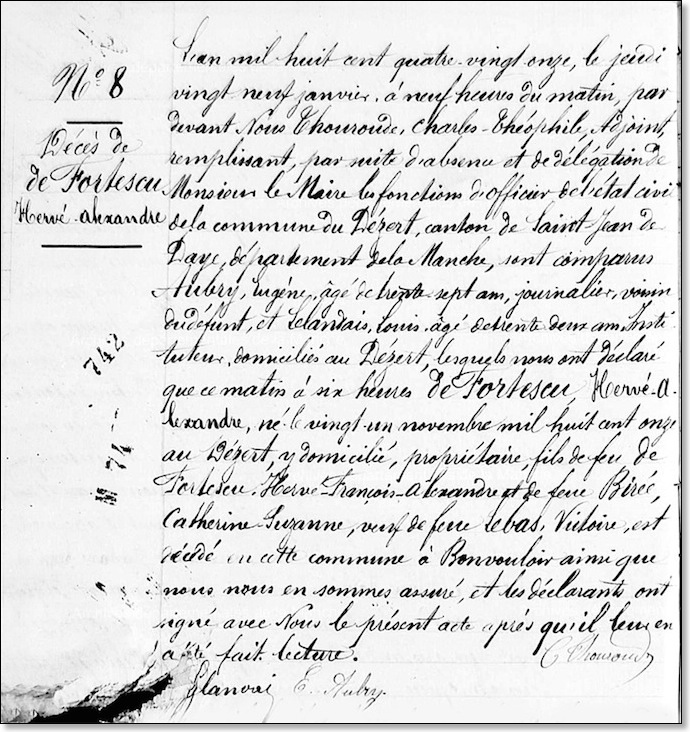 N° 8
Décès de
de Fortescu
Hervé-Alexandre
742
M 74
L'an mil huit cent quatre-vingt onze, le jeudi
vingt neuf janvier, à neuf heures du matin, par
devant Nous Thouroude, Charles-Théophile, Adjoint,
remplissant, par suite d'absence et de délégation de
Monsieur le Maire les fonctions d'officier de l'état civil
de la commune du Dézert, canton de Saint Jean de
Daye, département de la Manche, sont comparus
Aubry, Eugène, âgé de trente sept ans, journalier, voisin
du défunt, et Lelandais, Louis, âgé de trente deux ans, Insti-
tuteur, domiciliés au Dézert, lesquels nous ont déclaré
que ce matin à six heures de Fortescu, Hervé-A-
lexandre, né le vingt-un novembre mil huit cent onze
au Dézert, y domicilié, propriétaire, fils de feu de
Fortescu Hervé-François-Alexandre et de feue Birée,
Catherine-Suzanne, veuf de feue Lebas, Victoire, est
décédé en cette commune à Bonvouloir ainsi que
nous nous en sommes assuré, et les déclarants ont
signé avec Nous le présent acte après qu'il leur en
a été fait lecture.
C Thouroude
E. Aubry.